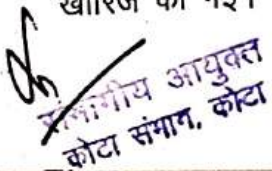 खारिज की गई।
संभागीय आयुक्त
कोटा संभाग, कोटा